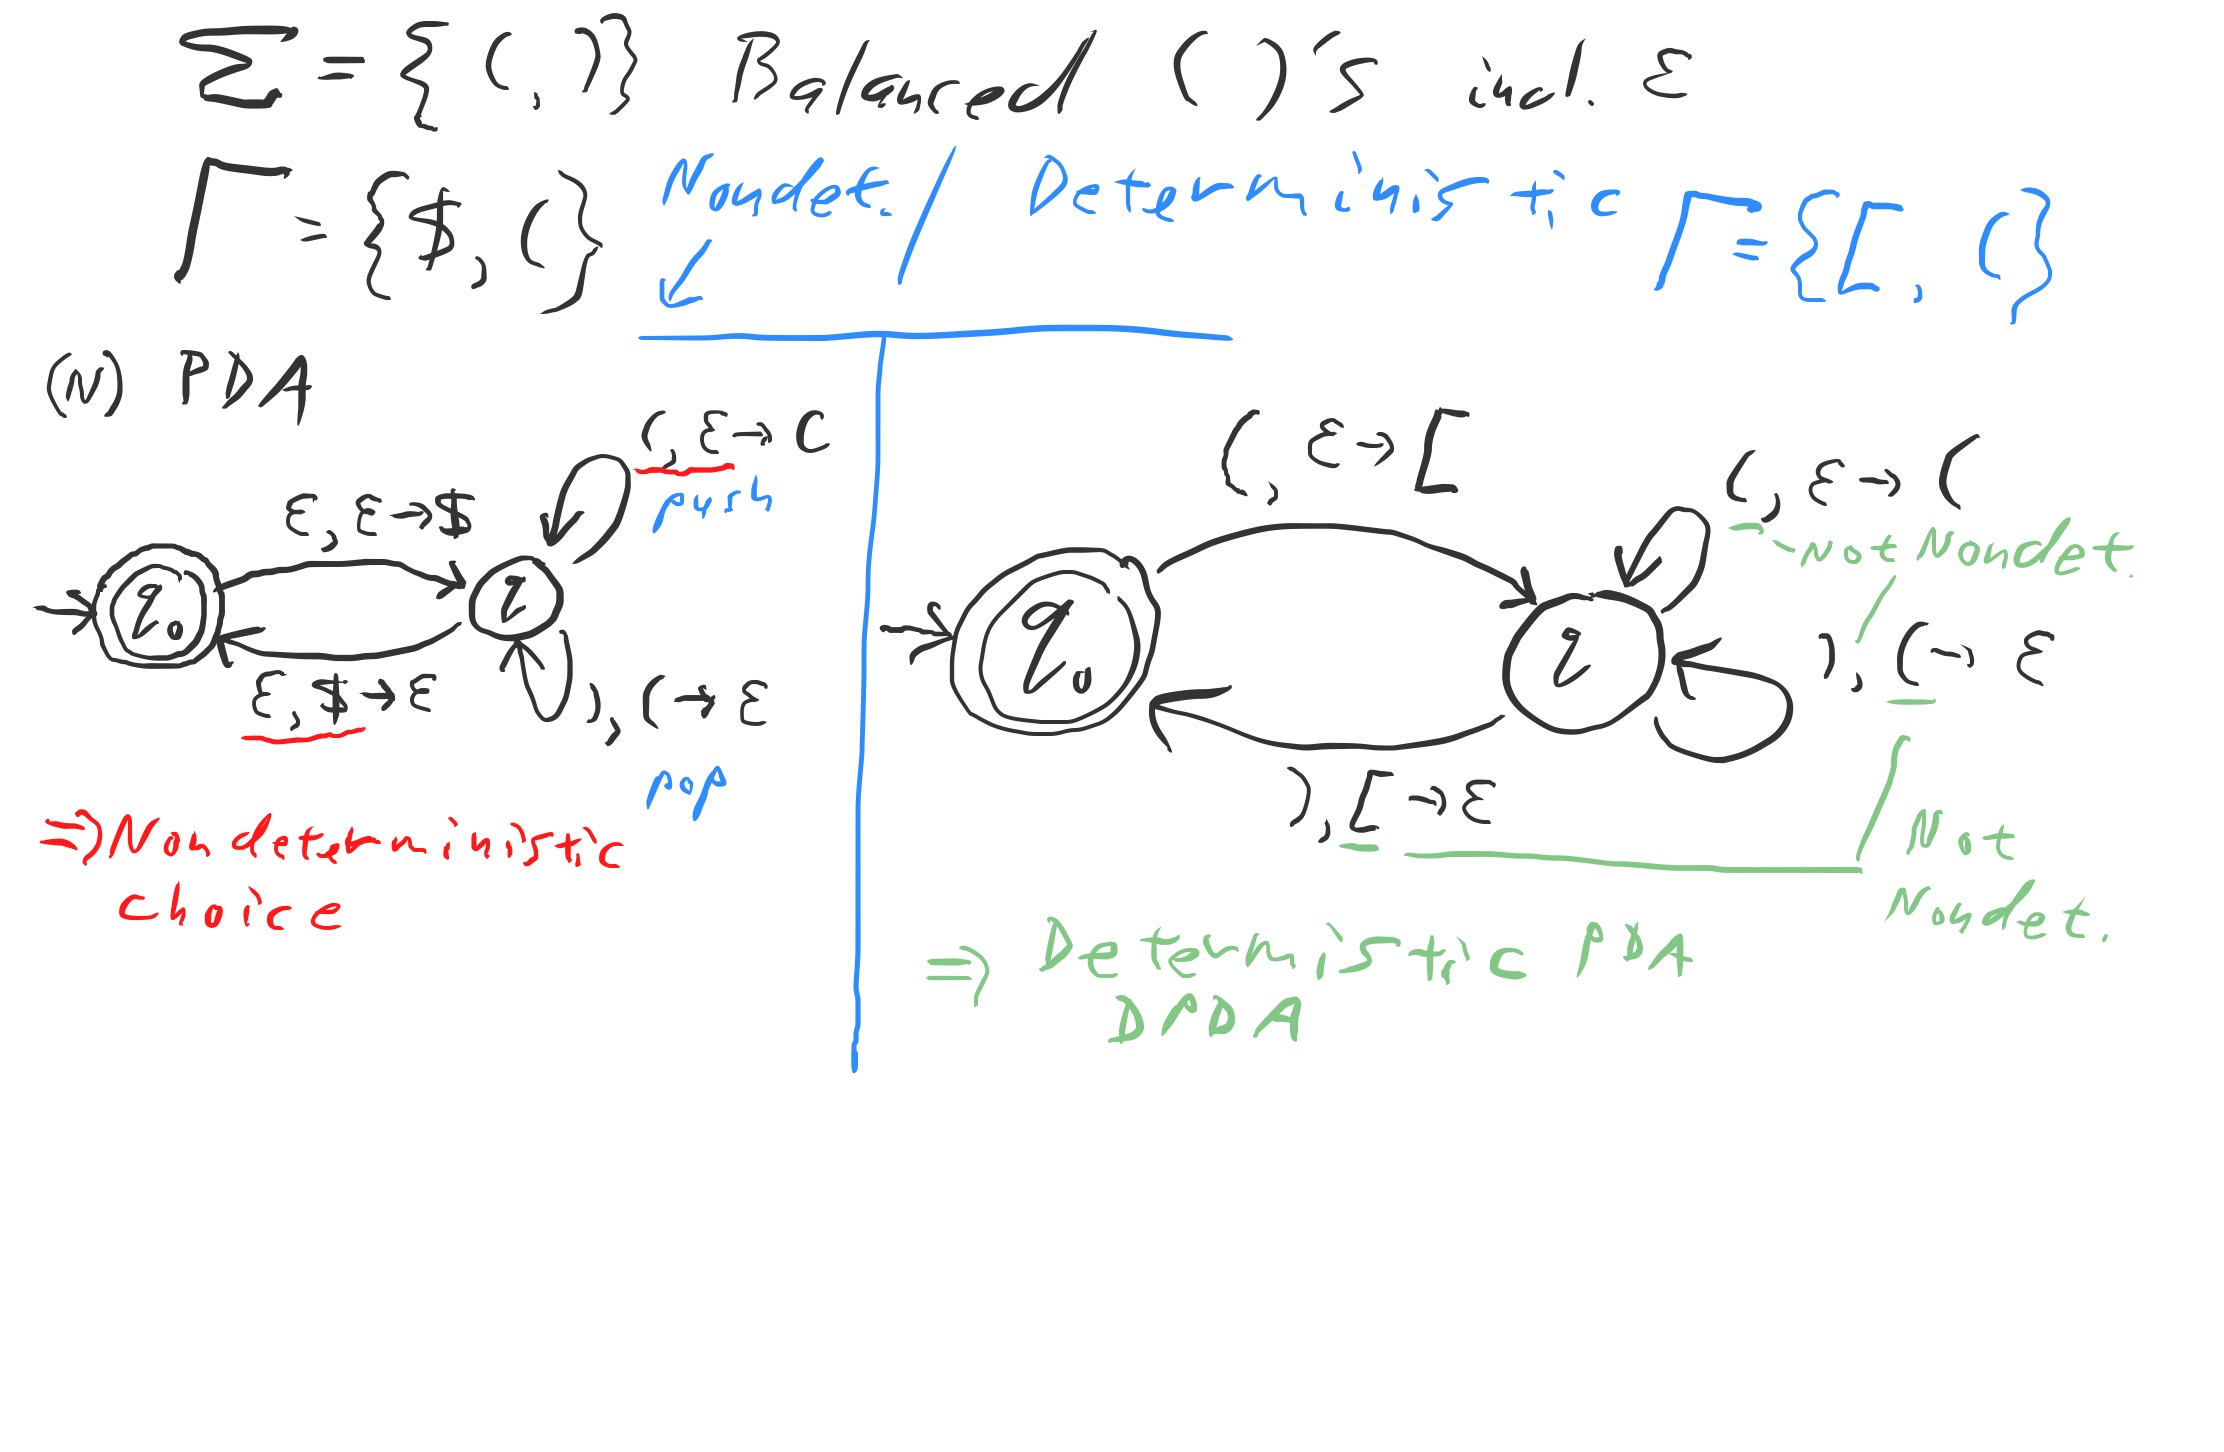 Σ = { ( , ) } Balanced ( )'s incl. ε
Γ = { $ , ( } Nondet. / Deterministic Γ = { [ , ( }
(N) PDA
( , ε → (
push
ε, ε → $
q₀
q
ε, $ → ε
) , ( → ε
pop
⇒ Nondeterministic
choice
( , ε → [
( , ε → (
Not Nondet.
q₀
q
) , ( → ε
) , [ → ε
Not
Nondet.
⇒ Determistic PDA
DPDA